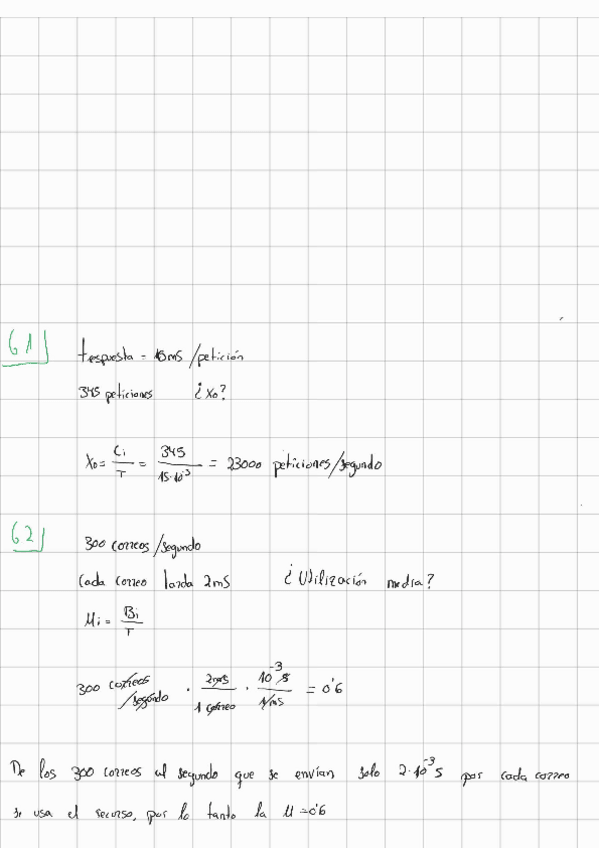 61)
trespuesta = 15mS /petición
345 peticiones ¿Xo?
Xo = Ci/T = 345/15·10⁻³ = 23000 peticiones/segundo
62)
300 correos /segundo
Cada correo tarda 2mS ¿Utilización media?
Mi = Bi/T
300 correos/segundo · 2mS/1 correo · 10⁻³ s/1mS = 0'6
De los 300 correos al segundo que se envían solo 2·10⁻³ s por cada correo
se usa el recurso, por lo tanto la U = 0'6